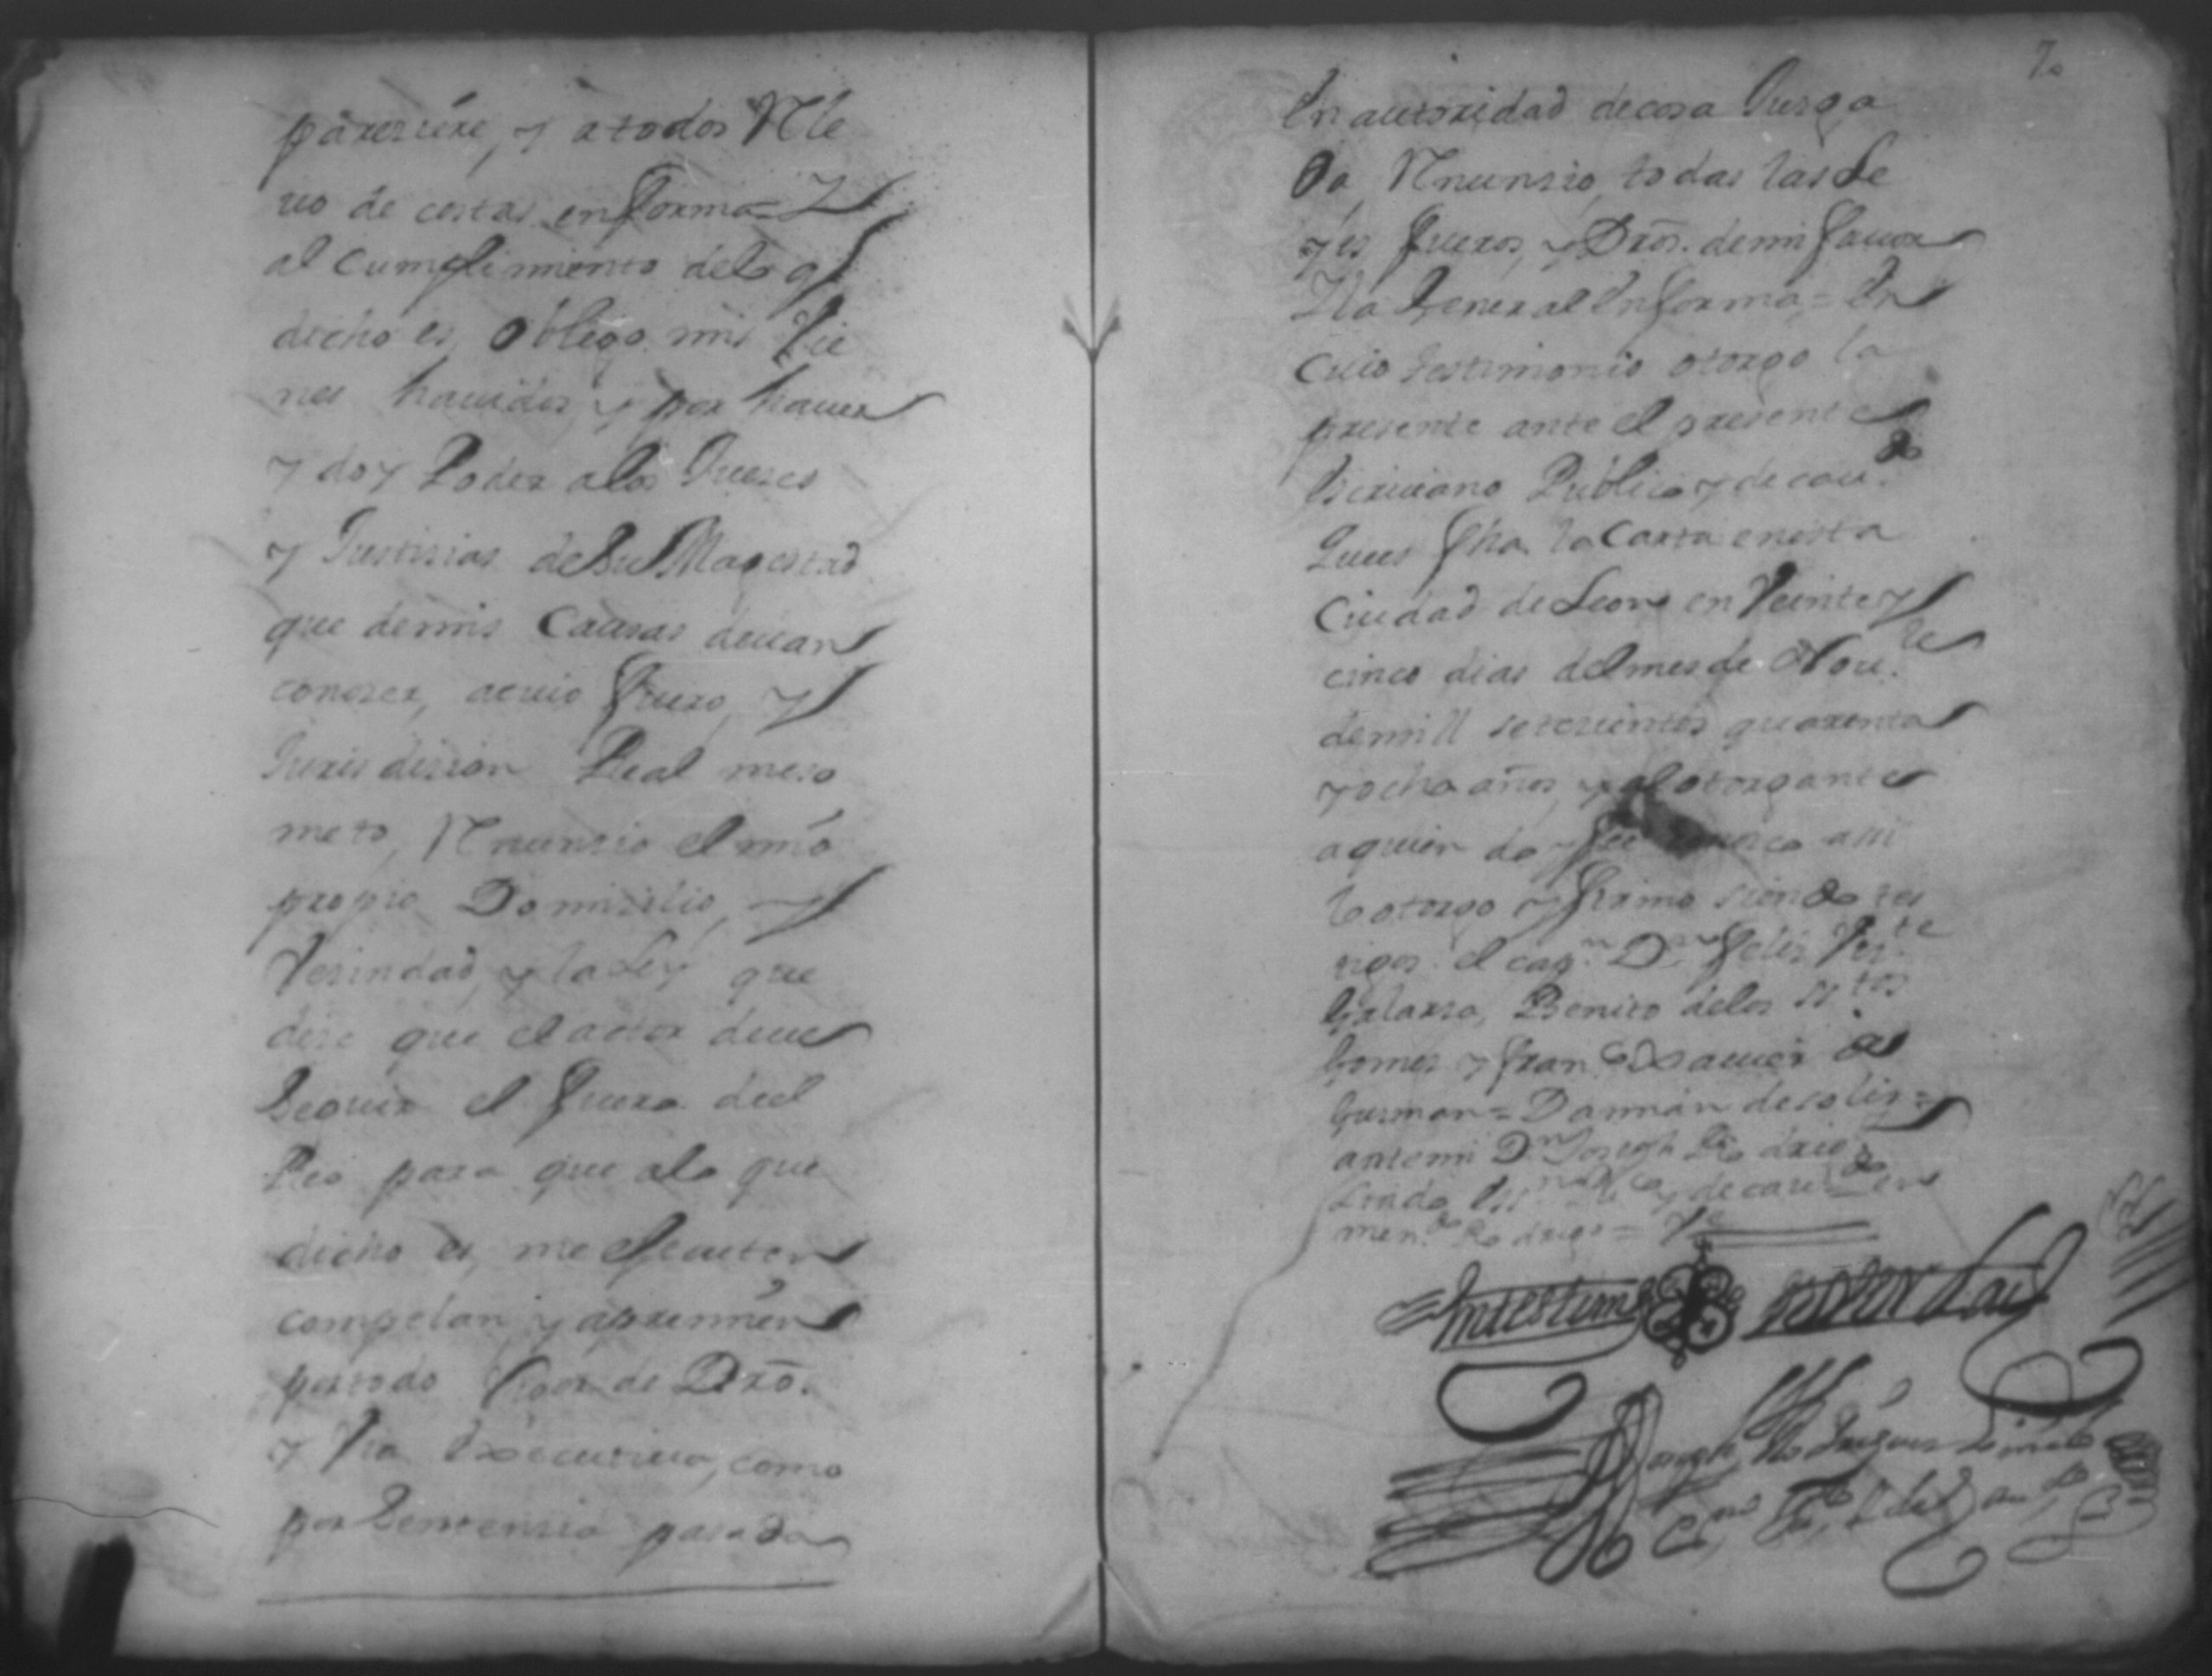 paresiere, y a todos Rle
uo de costas en forma= Y
al Cumplimiento delo q
dicho es, Obligo mis Vie
nes hauidos, y por hauer
y doy Poder alos Jueses
y Justisias de Su Magestad
que demis Causas deuan
conoser, acuio fuero, y
Jurisdision Real meso
meto, Rnunsio el mio
propio Domisilio, y
Vesindad, y la Ley que
dise que el actor deue
Seguir el fuero deel
Reo para que alo que
dicho es, me Executen
compelan, y apremien
por todo rigor de Dro.
y Via Executiua, como
por Sentensia pasada
7o
En autoridad de cosa Jusga
Da, Rnunsio, todas las Le
yes fueros, y Dros. demi fauor
Y la General En forma,= En
Cuio testimonio otorgo la
presente ante el presente
Escriuano Publico y de cau.do
Que es fha. la Carta enesta
Ciudad de Leon en Veinte y
cinco dias del mes de Nou.re
demill setesientos quarenta
y ocho años, y el otorgante
a quien doy fee conosco assi
lo otorgo y firmo siendo tes
tigos el cap.n D.n Felis Vis.te
Galarsa, Benito delos S.tos
Gomes y Fran.co Xauier de
Gusman= Damian de solis=
antemi D.n Joseph Rodrig.s
Lindo Ess.no Pu.co y de cau.do en
men.do Rodrigs= Ve
En testimo de Verdad
Joseph Rodrigues Lindo